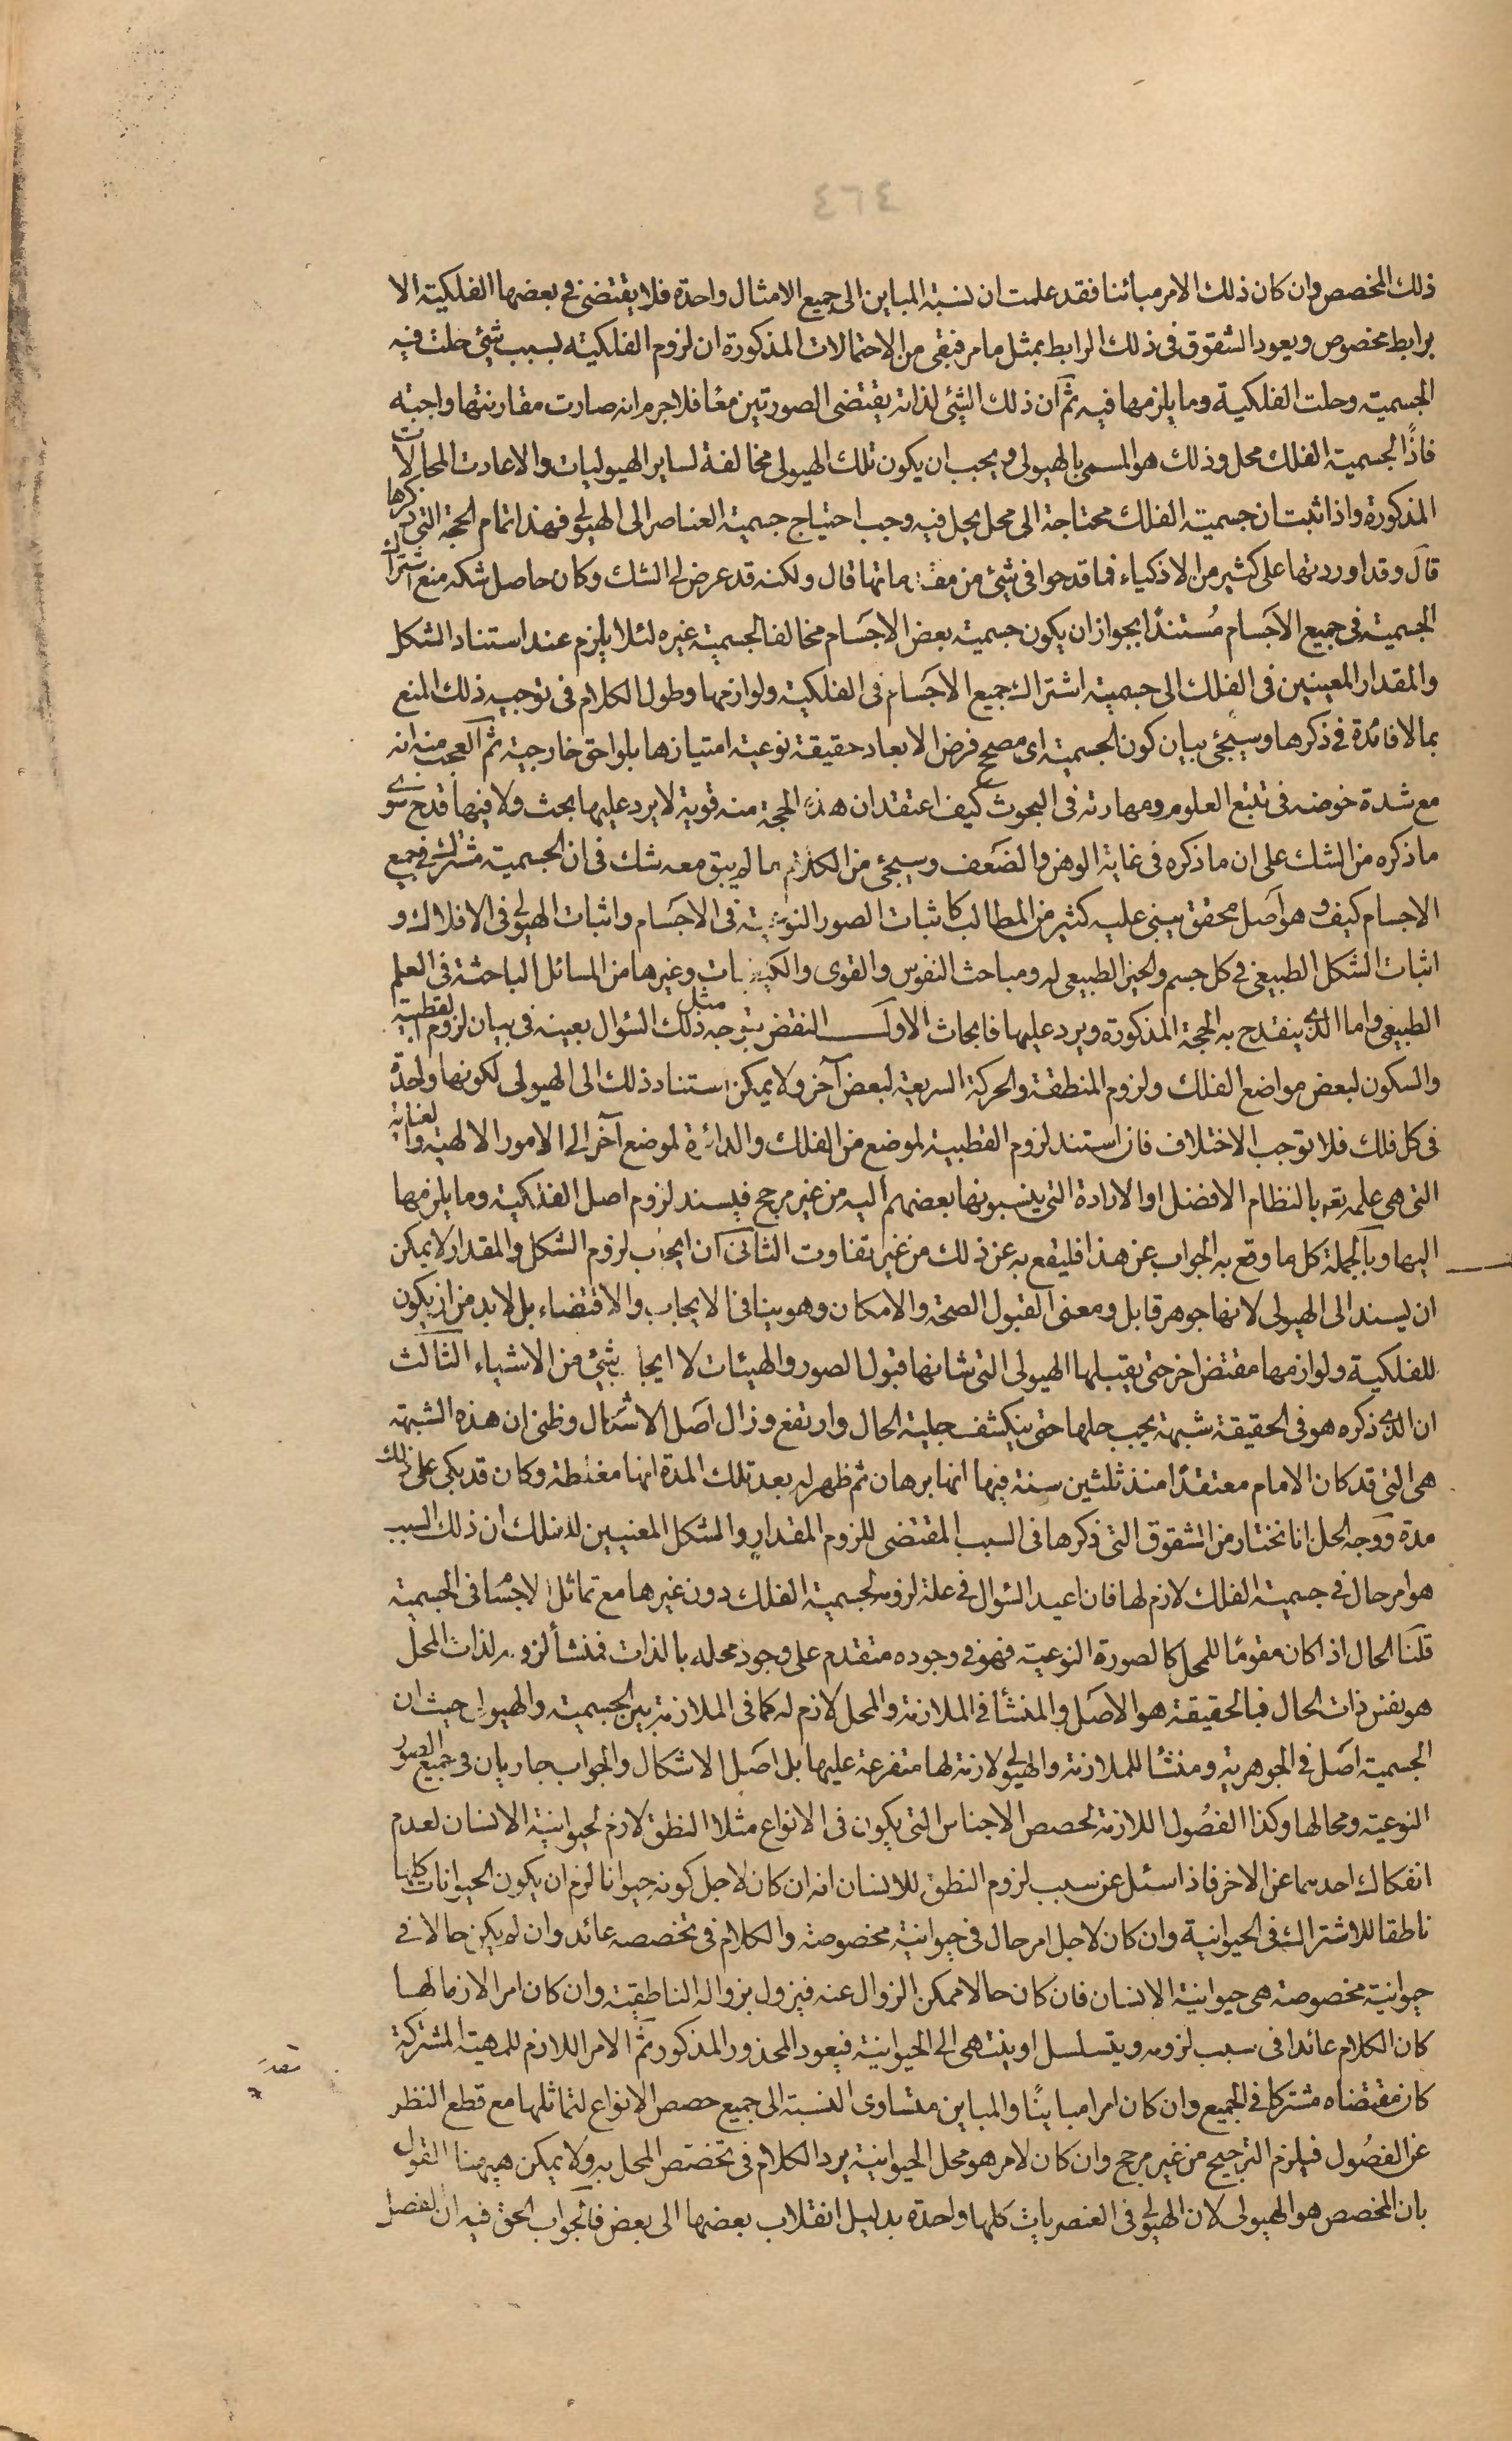 ٤٦٤
ذلك المخصص وان كان ذلك الامر مبائنا فقد علمت ان نسبة المباين الى جميع الامثال واحدة فلا يقتضى فى بعضها الفلكية الا
برابط مخصوص ويعود الشقوق فى ذلك الرابط بمثل ما مر فبقى من الاحتمالات المذكورة ان لزوم الفلكية بسبب شيئ حلت فيه
الجسمية وحلت الفلكية وما يلزمها فيه ثم ان ذلك الشيئ لذاته يقتضى الصورتين معًا فلاجرم انه صارت مقارنتها واجبة
فاذًا لجسمية الفلك محل وذلك هو المسمى بالهيولى ويجب ان يكون تلك الهيولى مخالفة لساير الهيوليات والا عادت المحالات
المذكورة واذا ثبت ان جسمية الفلك محتاجة الى محل يحل فيه وجب احتياج جسمية العناصر الى الهيولى فهذا تمام الحجة التى ذكرها
قال وقد اوردتها على كثير من الاذكياء فما قدحوا فى شيئ من مقدماتها قال ولكنه قد عرض لى الشك وكان حاصل شكه منع اشتراك
الجسمية فى جميع الاجسام مُستندًا بجواز ان يكون جسمية بعض الاجسام مخالفا لجسمية غيره لئلا يلزم عند استناد الشكل
والمقدار المعينين فى الفلك الى جسمية اشتراك جميع الاجسام فى الفلكية ولوازمها وطول الكلام فى توجيه ذلك المنع
بما لا فائدة فى ذكرها وسيجئ بيان كون الجسمية اى مصحح فرض الابعاد حقيقة نوعية امتيازها بلواحق خارجية ثم العجب منه انه
مع شدة خوضه فى تتبع العلوم ومهارته فى البحوث كيف اعتقد ان هذه الحجة منه قوية لا يرد عليها بحث ولا فيها قدح سوى
ما ذكره من الشك على ان ما ذكره فى غاية الوهن والضعف وسيجئ من الكلام ما لم يبق معه شك فى ان الجسمية مشترك فى جميع
الاجسام كيف وهو اصل محقق يبنى عليه كثير من المطالب كاثبات الصور النوعية فى الاجسام واثبات الهيولى فى الافلاك و
اثبات الشكل الطبيعى فى كل جسم والحيز الطبيعى له ومباحث النفوس والقوى والكيفيات وغيرها من المسائل الباحثة فى العلم
الطبيعى واما الذى ينقدح به الحجة المذكورة ويرد عليها فابحاث الاول النقض بتوجه مثل ذلك السؤال بعينه فى بيان لزوم القطبية
والسكون لبعض مواضع الفلك ولزوم المنطقة والحركة السريعة لبعض آخر ولا يمكن استناد ذلك الى الهيولى لكونها واحدة
فى كل فلك فلا توجب الاختلاف فان استند لزوم القطبية لموضع من الفلك والدائرة لموضع آخر الى الامور الالهية والعناية
التى هى علمه تعه بالنظام الافضل او الارادة التى ينسبونها بعضهم اليه من غير مرجح فليسند لزوم اصل الفلكية وما يلزمها
اليها وبالجملة كل ما وقع به الجواب عن هذا فليقع به عن ذلك من غير تفاوت الثانى ان ايجاب لزوم الشكل والمقدار لا يمكن
ان يسند الى الهيولى لانها جوهر قابل ومعنى القبول الصحة والامكان وهو ينافى الايجاب والاقتضاء بل لا بد من ان يكون
للفلكية ولوازمها مقتض اخر حتى يقبلها الهيولى التى شانها قبول الصور والهيئات لا ايجاب شيئ من الاشياء الثالث
ان الذى ذكره هو فى الحقيقة شبهة يجب حلها حتى ينكشف جلية الحال وارتفع وزال اصل الاشكال وظنى ان هذه الشبهة
هى التى قد كان الامام معتقدًا منذ ثلثين سنة فيها انها برهان ثم ظهر له بعد تلك المدة انها مغلطة وكان قد بكى على ذلك
مدة ووجه الحل انا نختار من الشقوق التى ذكرها فى السبب المقتضى للزوم المقدار والشكل المعنيين للفلك ان ذلك السبب
هو امر حال فى جسمية الفلك لازم لها فان اعيد السؤال فى علة لزومه لجسمية الفلك دون غيرها مع تماثل الاجسام فى الجسمية
قلنا الحال اذا كان مقومًا للمحل كالصورة النوعية فهو فى وجوده متقدم على وجود محله بالذات فمنشأ لزومه لذات المحل
هو نفس ذات الحال فبالحقيقة هو الاصل والمنشأ فى الملازمة والمحل لازم له كما فى الملازمة بين الجسمية والهيولى حيث ان
الجسمية اصل فى الجوهرية ومنشأ للملازمة والهيولى لازمة لها متفرعة عليها بل اصل الاشكال والجواب جاريان فى جميع الصور
النوعية ومحالها وكذا الفصُول اللازمة لحصص الاجناس التى يكون فى الانواع مثلا النطق لازم لحيوانية الانسان لعدم
انفكاك احدهما عن الاخر فاذا سئل عن سبب لزوم النطق للانسان انه ان كان لاجل كونه حيوانا لزم ان يكون الحيوانات كلها
ناطقا للاشتراك فى الحيوانية وان كان لاجل امر حال فى حيوانية مخصوصة والكلام فى تخصصه عائد وان لم يكن حالا فى
حيوانية مخصوصة هى حيوانية الانسان فان كان حالا ممكن الزوال عنه فيزول بزواله الناطقية وان كان امر الازما لها
كان الكلام عائدا فى سبب لزومه ويتسلسل او ينتهى الى الحيوانية فيعود المحذور المذكور ثم الامر اللازم للمهية المشتركة
كان مقتضاه مشتركا فى الجميع وان كان امرا مباينًا والمباين متساوى النسبة الى جميع حصص الانواع لتماثلها مع قطع النظر
عن الفصُول فيلزم الترجيح من غير مرجح وان كان لامر هو محل الحيوانية يرد الكلام فى تخصّص المحل به ولا يمكن هيهنا القول
بان المخصص هو الهيولى لان الهيولى فى العنصريات كلها واحدة بدليل انقلاب بعضها الى بعض فالجواب الحق فيه ان لفصل